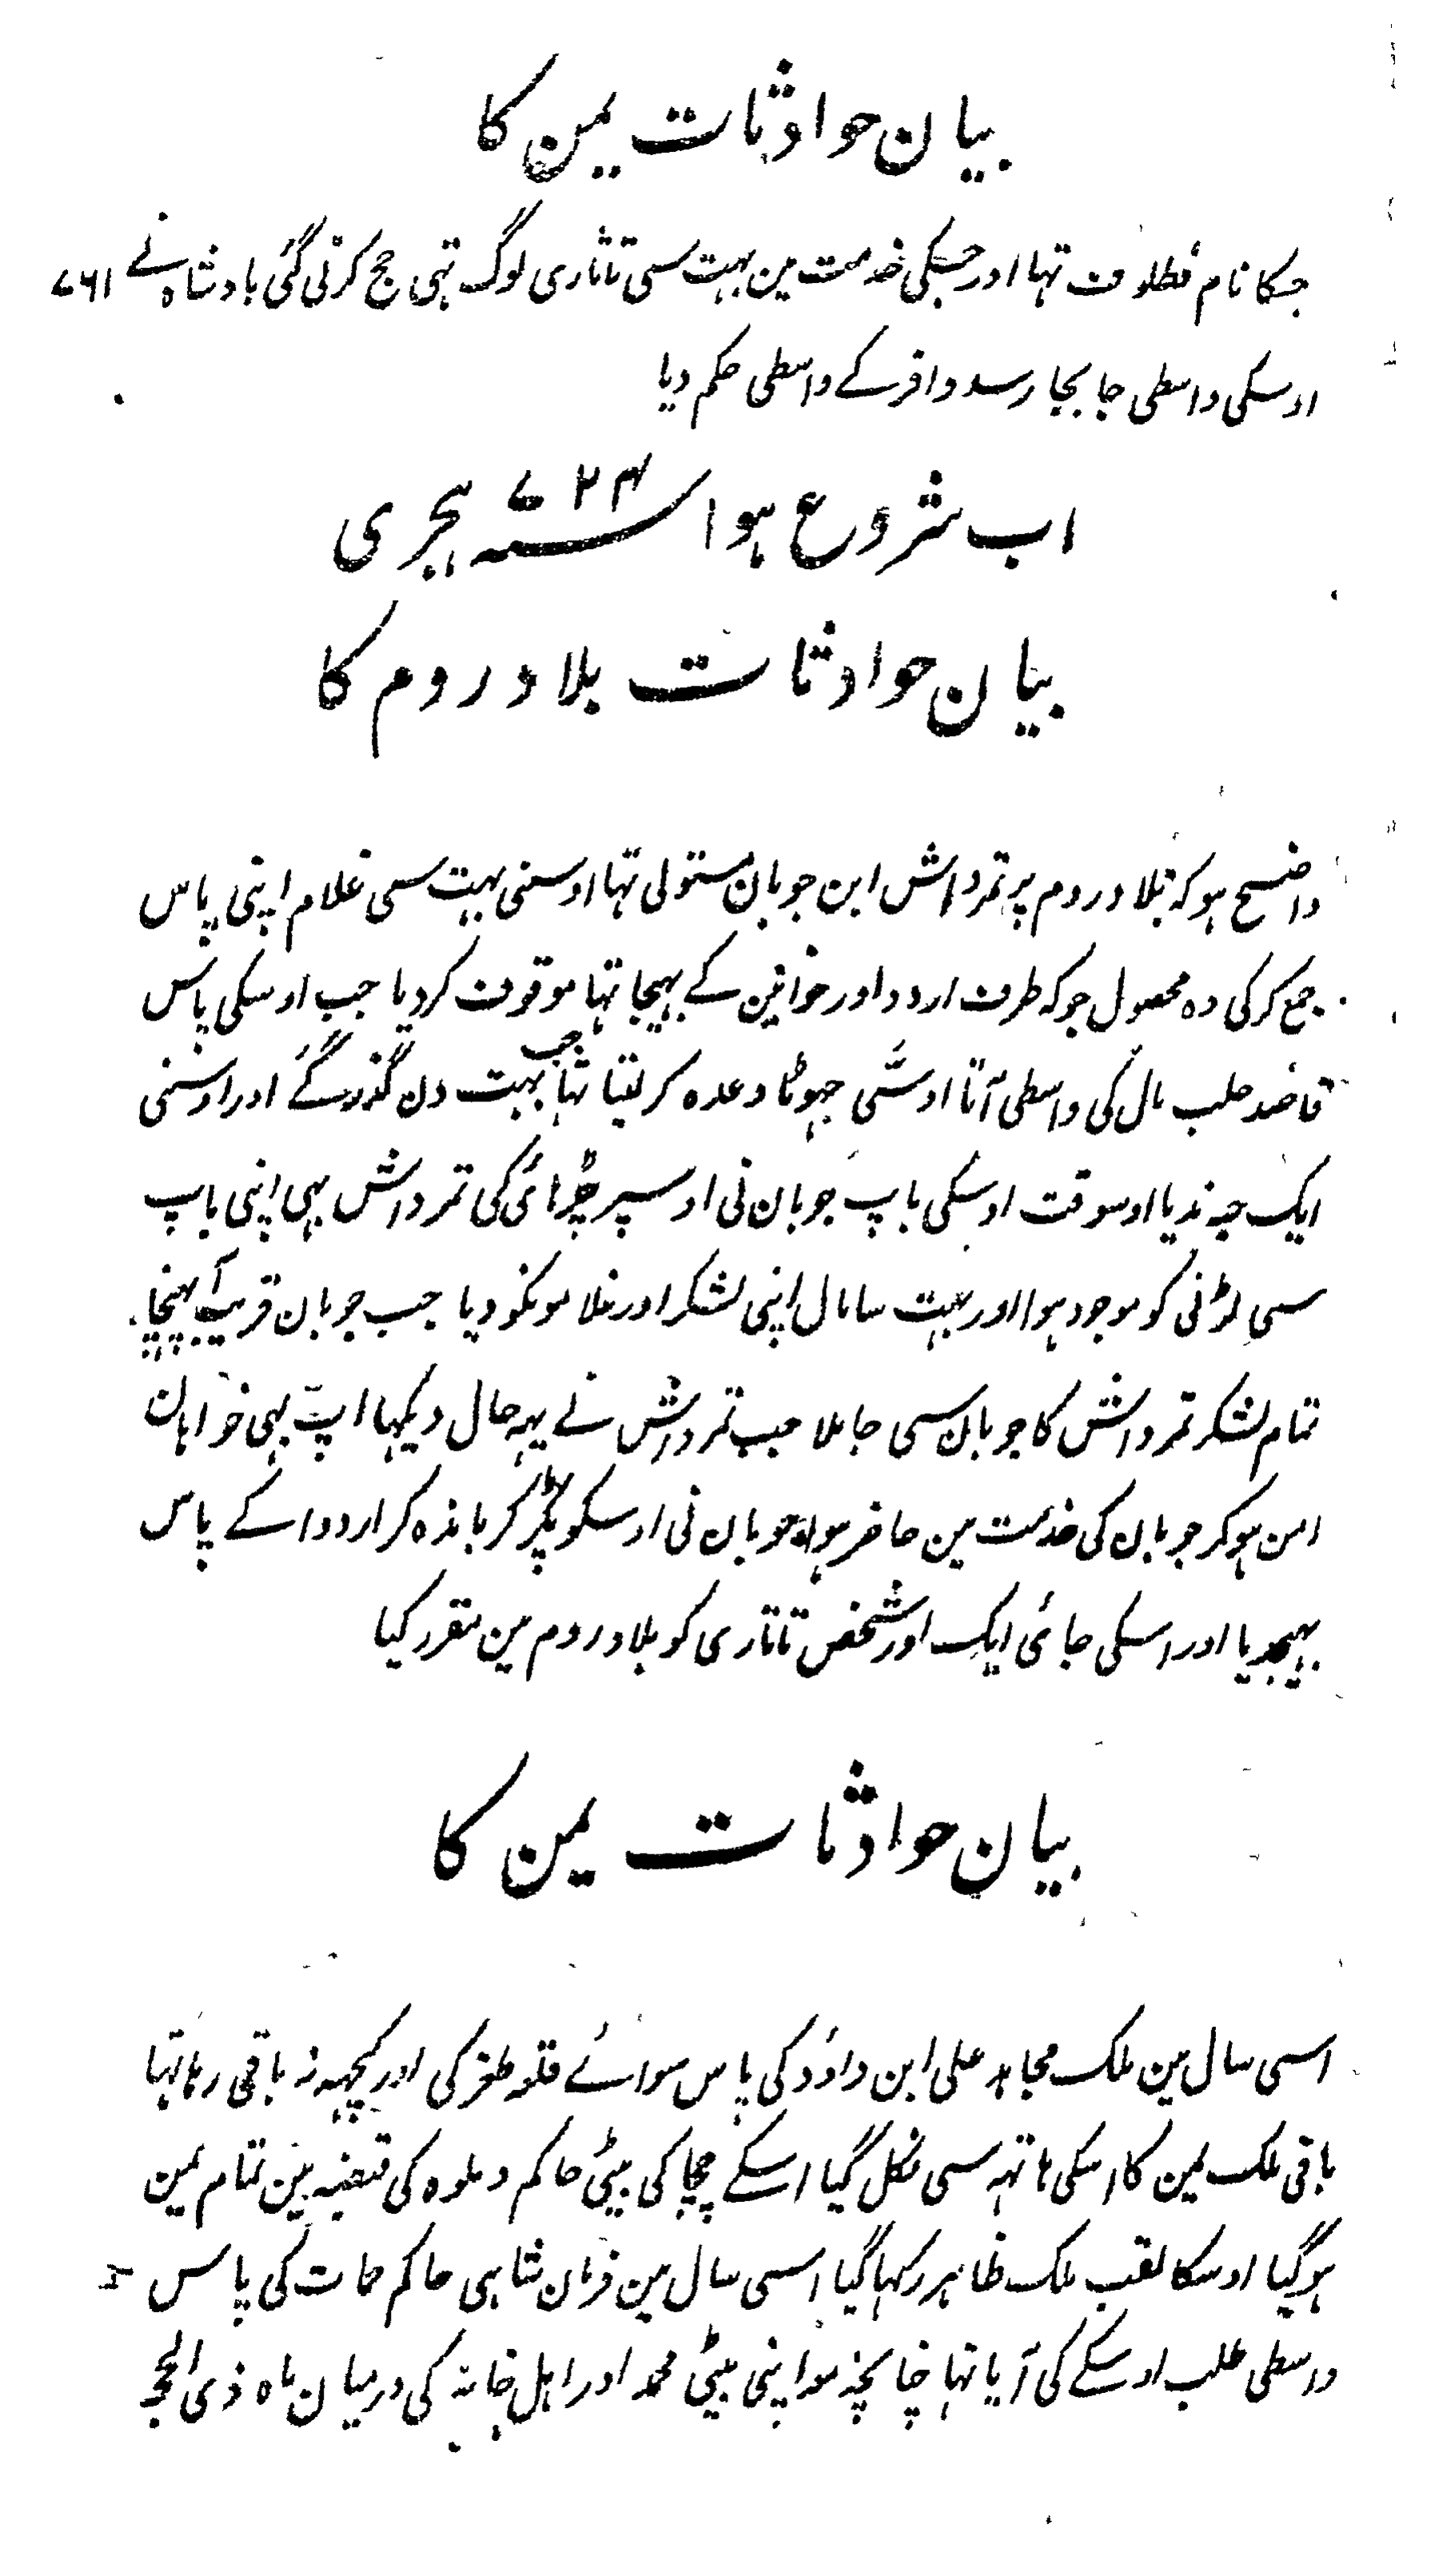 بیان حوادثات یمن کا
جسکا نام قطلوف تہا اور جسکی خدمت مین بہت سی تاتاری لوگ تہی حج کرنی گئی بادشاہ نے ۷۶۱
اوسکی واسطی جابجا رسد وافر کے واسطی حکم دیا
اب شروع ہوا سنہ ۷۲۴ ہجری
بیان حوادثات بلاد روم کا
واضح ہو کہ بلاد روم پر تمرداش ابن جوبان مستولی تہا اوسنی بہت سی غلام اپنی پاس
جمع کر کی وہ محصول جو کہ طرف اردو اور خواتین کے بہیجا تہا موقوف کردیا جب اوسکی پاس
قاصد طلب مال کی واسطی آتا اوسّی جہوٹا وعدہ کر لیتا تہا جب بہت دن گذر گئے اور اوسنی
ایک حبہ ندیا اوسوقت اوسکی باپ جوبان نی اوسپر چڑہائی کی تمرداش بہی اپنی باپ
سی لڑنی کو موجود ہوا اور بہت سا مال اپنی لشکر اور غلامونکو دیا جب جوبان قریب آپہنچا
تمام لشکر تمرداش کا جوبان سی جا ملا جب تمرداش نے یہہ حال دیکہا اپ بہی خواہان
امن ہو کر جوبان کی خدمت مین حاضر ہوا جوبان نی اوسکو پکڑ کر باندہ کر اردوا کے پاس
بہیجدیا اور اسکی جائی ایک اور شخص تاتاری کو بلاد روم مین مقرر کیا
بیان حوادثات یمن کا
اسی سال مین ملک مجاہد علی ابن داؤد کی پاس سوائے قلعہ طغر کی اور کچہہ نہ باقی رہا تہا
باقی ملک یمن کا اسکی ہاتہہ سی نکل گیا اسکے چچا کی بیٹی حاکم دملوہ کی قبضہ مین تمام یمن
ہو گیا اوسکا لقب ملک ظاہر رکہا گیا اسی سال مین فرمان شاہی حاکم حمات کی پاس
واسطی طلب اوسکے کی آیا تہا چنانچہ معہ اپنی بیٹی محمد اور اہل خانہ کی درمیان ماہ ذی الحجہ